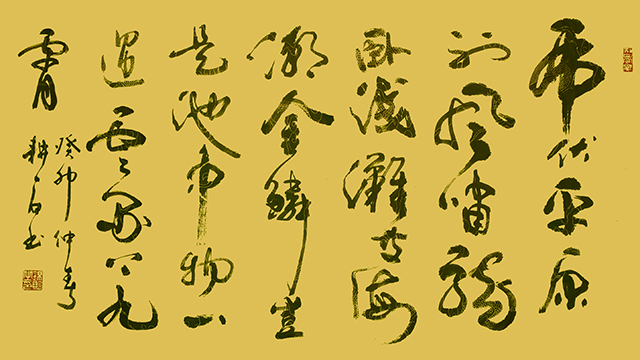 虎伏平原
听風嘯龍
臥淺灘等海
潮金鱗豈
是池中物一
遇雲上九
霄
癸卯仲春
耕石書